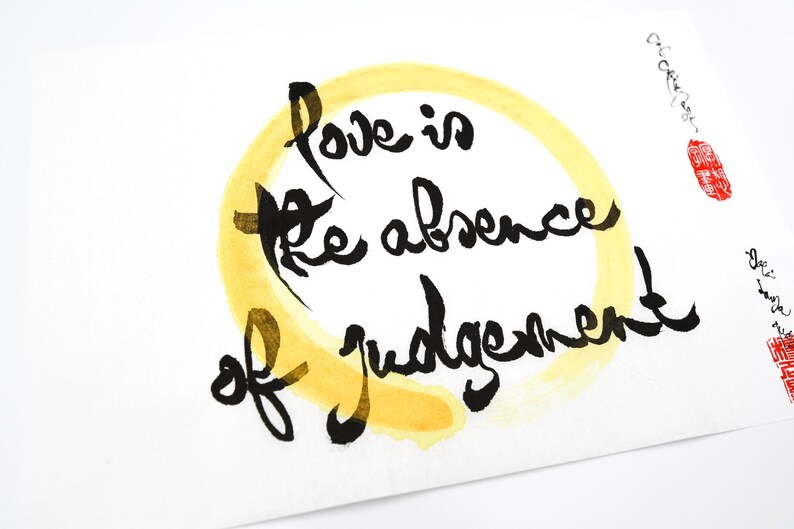 love is
the absence
of judgement
Dalai Lama